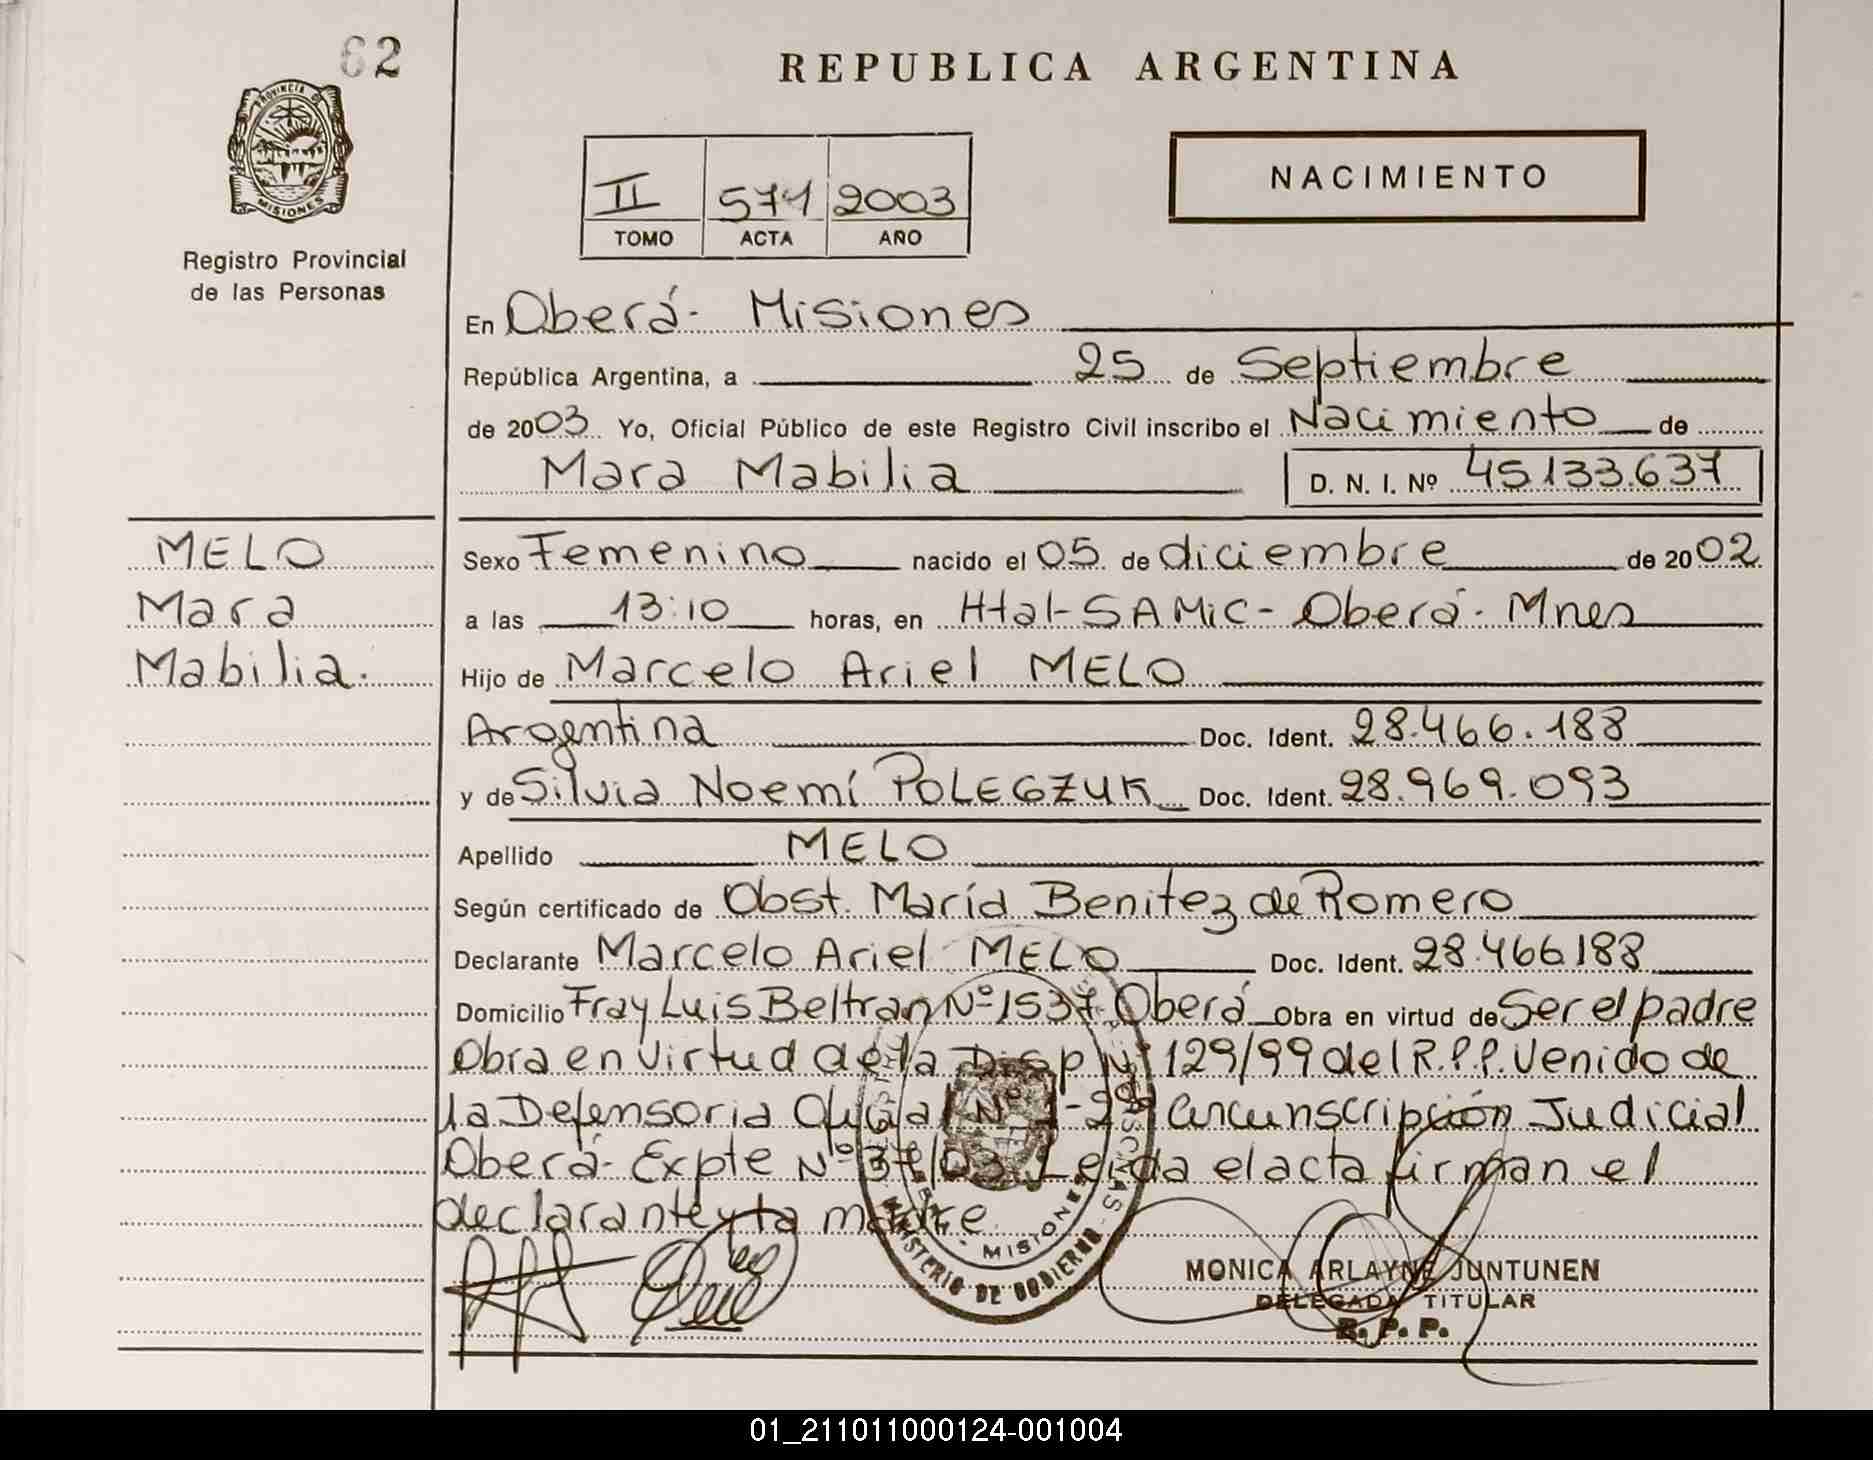 62
REPUBLICA ARGENTINA
PROVINCIA DE
MISIONES
Registro Provincial
de las Personas
II 571 2003
TOMO ACTA AÑO
NACIMIENTO
En Oberá - Misiones
República Argentina, a 25 de Septiembre
de 2003 Yo, Oficial Público de este Registro Civil inscribo el Nacimiento de
Mara Mabilia D. N. I. Nº 45.133.637
MELO
Mara
Mabilia.
Sexo Femenino nacido el 05 de diciembre de 2002
a las 13:10 horas, en Htal-SAMIC- Oberá - Mnes
Hijo de Marcelo Ariel MELO
Argentina Doc. Ident. 28.466.188
y de Silvia Noemí POLEGZUK Doc. Ident. 28.969.093
Apellido MELO
Según certificado de Obst. María Benitez de Romero
Declarante Marcelo Ariel MELO Doc. Ident. 28.466188
Domicilio Fray Luis Beltran Nº 1537 Oberá Obra en virtud de Ser el padre
Obra en virtud de la Disp Nº 129/99 del R.P.P. Venido de
la Defensoria Oficial Nº 1-2da Circunscripción Judicial
Oberá- Expte Nº 37/03. Leida el acta firman el
declarante y la madre.
MISIONES
MINISTERIO DE GOBIERNO
MONICA ARLAYNE JUNTUNEN
DELEGADA TITULAR
R. P. P.
01_211011000124-001004